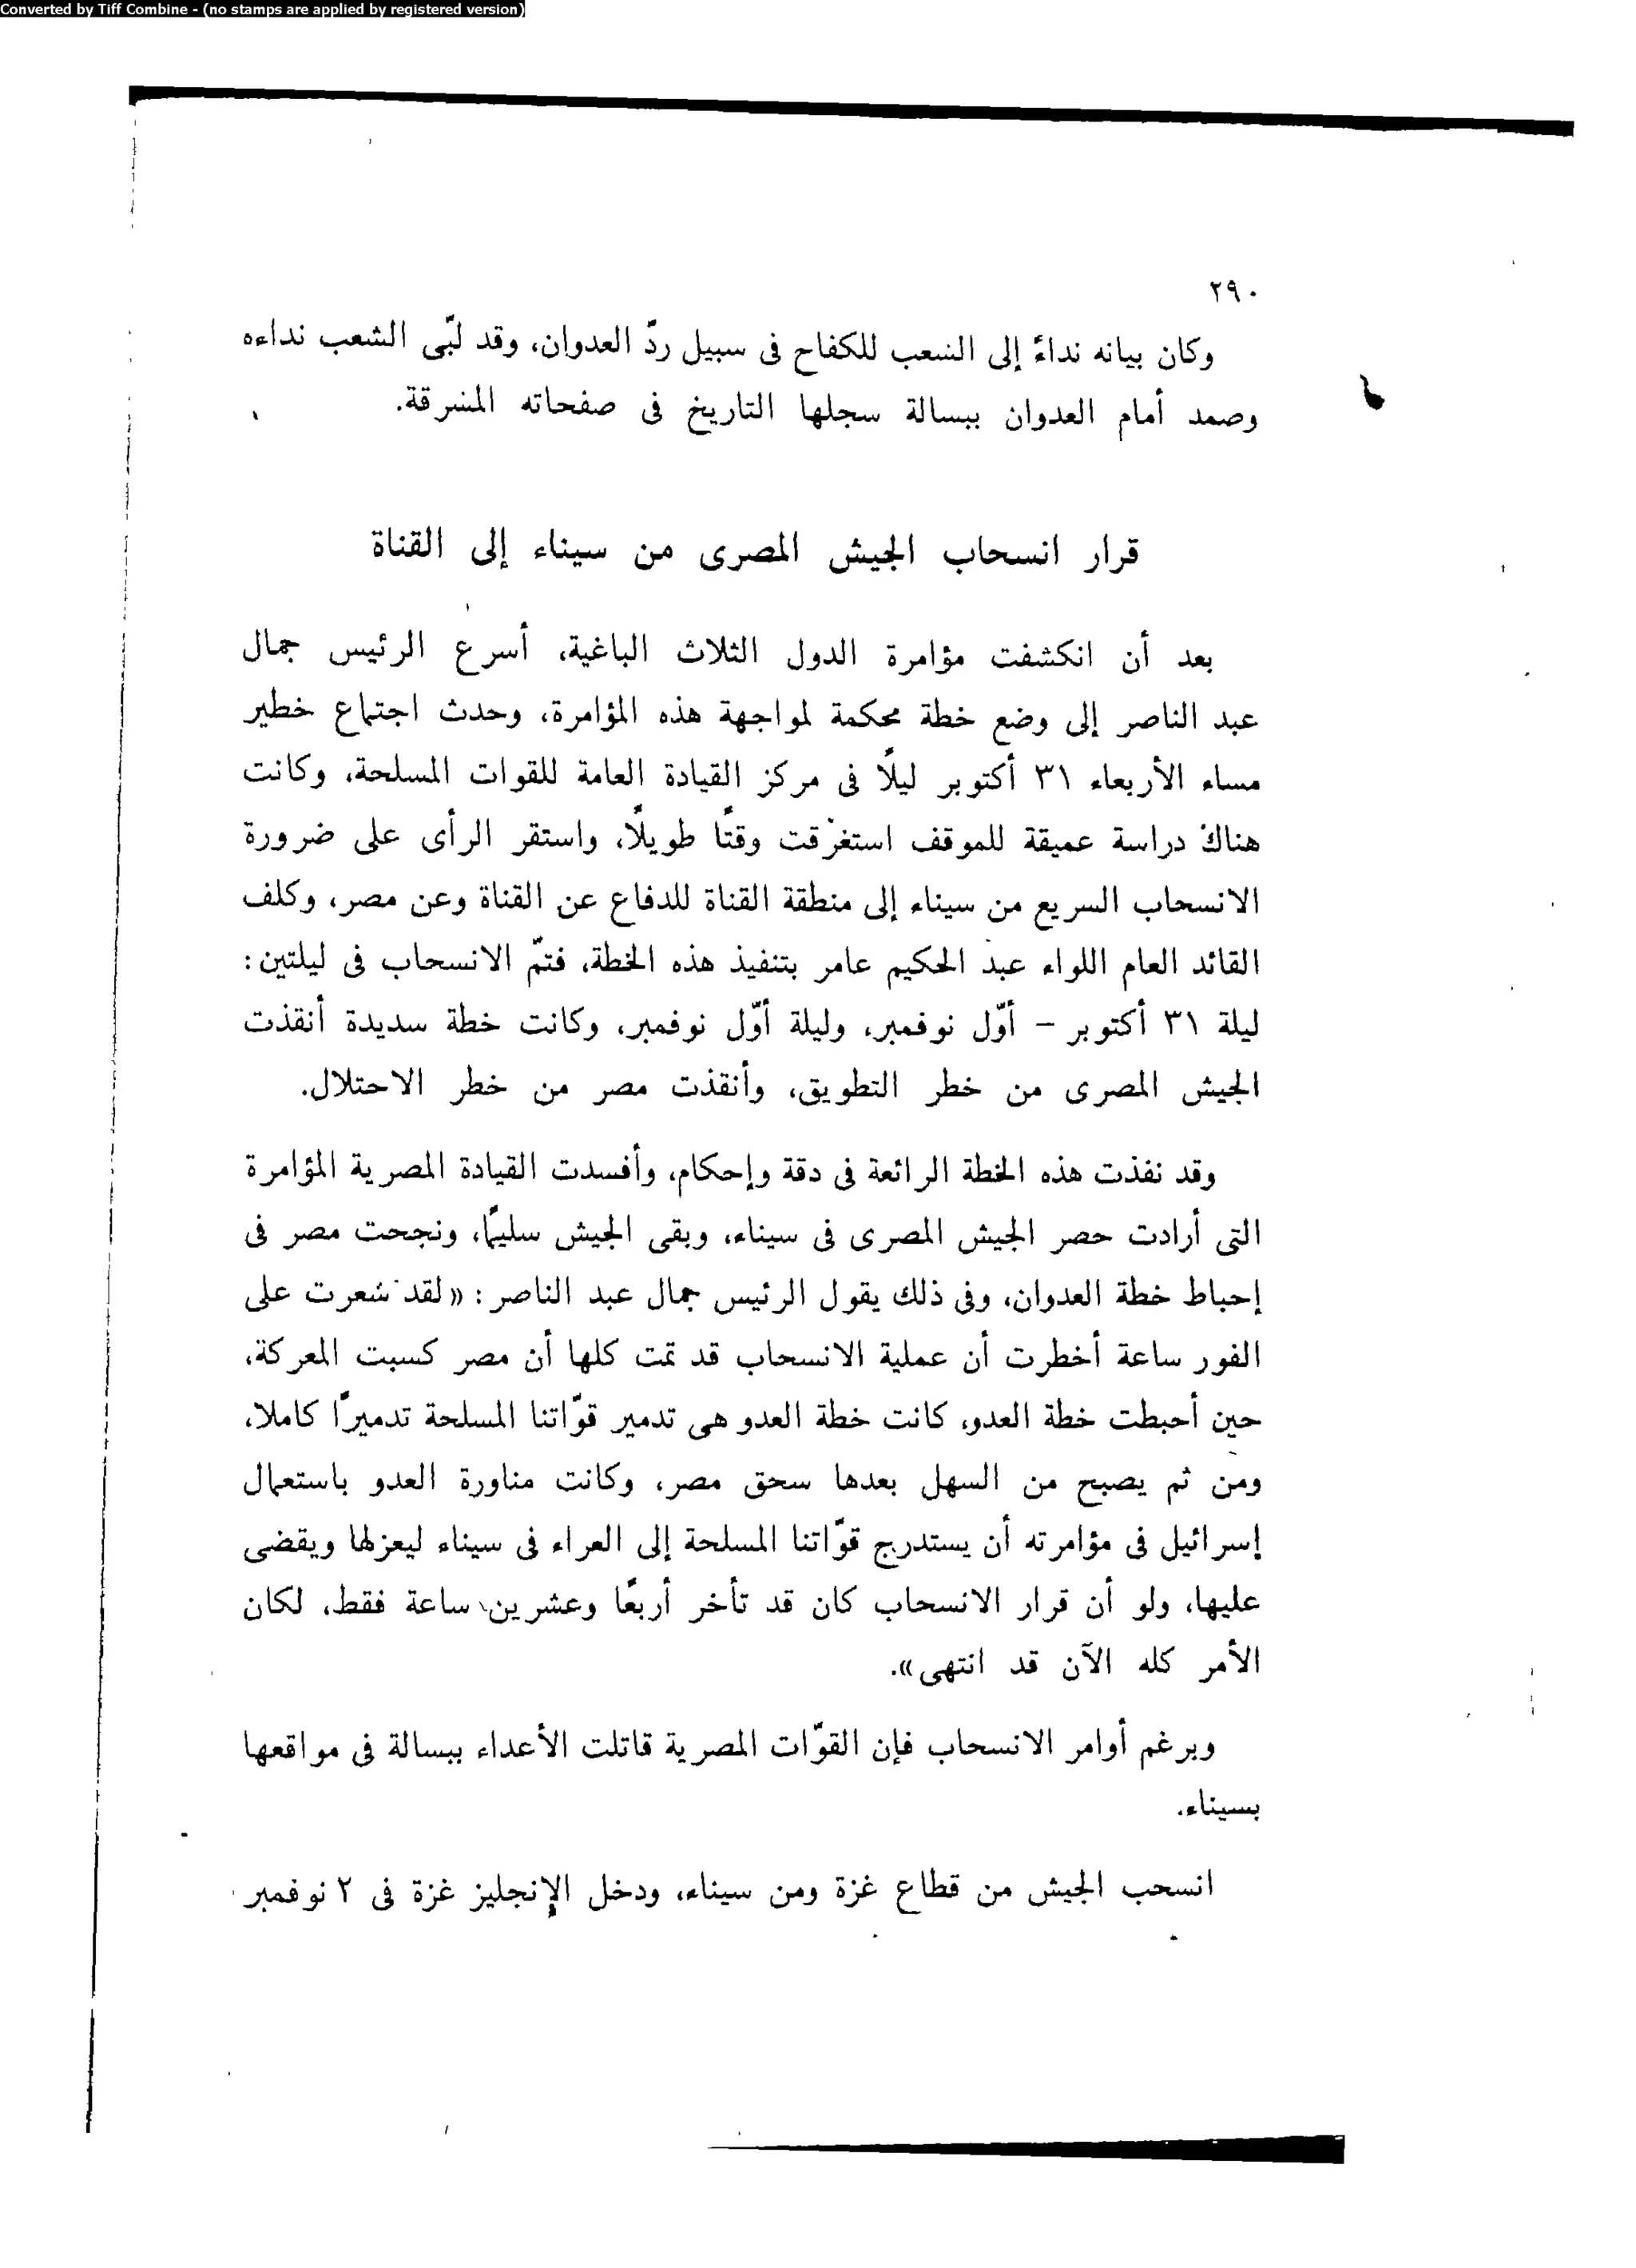 Converted by Tiff Combine - (no stamps are applied by registered version)
٢٩٠
وكان بيانه نداءً إلى الشعب للكفاح فى سبيل ردّ العدوان، وقد لبّى الشعب نداءه
وصمد أمام العدوان ببسالة سجلها التاريخ فى صفحاته المشرقة.
قرار انسحاب الجيش المصرى من سيناء إلى القناة
بعد أن انكشفت مؤامرة الدول الثلاث الباغية، أسرع الرئيس جمال
عبد الناصر إلى وضع خطة محكمة لمواجهة هذه المؤامرة، وحدث اجتماع خطير
مساء الأربعاء ٣١ أكتوبر ليلًا فى مركز القيادة العامة للقوات المسلحة، وكانت
هناك دراسة عميقة للموقف استغرقت وقتًا طويلًا، واستقر الرأى على ضرورة
الانسحاب السريع من سيناء إلى منطقة القناة للدفاع عن القناة وعن مصر، وكلف
القائد العام اللواء عبد الحكيم عامر بتنفيذ هذه الخطة، فتمّ الانسحاب فى ليلتين:
ليلة ٣١ أكتوبر – أوّل نوفمبر، وليلة أوّل نوفمبر، وكانت خطة سديدة أنقذت
الجيش المصرى من خطر التطويق، وأنقذت مصر من خطر الاحتلال.
وقد نفذت هذه الخطة الرائعة فى دقة وإحكام، وأفسدت القيادة المصرية المؤامرة
التى أرادت حصر الجيش المصرى فى سيناء، وبقى الجيش سليمًا، ونجحت مصر فى
إحباط خطة العدوان، وفى ذلك يقول الرئيس جمال عبد الناصر: «لقد شعرت على
الفور ساعة أخطرت أن عملية الانسحاب قد تمت كلها أن مصر كسبت المعركة،
حين أحبطت خطة العدو، كانت خطة العدو هى تدمير قوّاتنا المسلحة تدميرًا كاملا،
ومن ثم يصبح من السهل بعدها سحق مصر، وكانت مناورة العدو باستعمال
إسرائيل فى مؤامرته أن يستدرج قوّاتنا المسلحة إلى العراء فى سيناء ليعزلها ويقضى
عليها، ولو أن قرار الانسحاب كان قد تأخر أربعًا وعشرين ساعة فقط، لكان
الأمر كله الآن قد انتهى».
وبرغم أوامر الانسحاب فإن القوّات المصرية قاتلت الأعداء ببسالة فى مواقعها
بسيناء.
انسحب الجيش من قطاع غزة ومن سيناء، ودخل الإنجليز غزة فى ٢ نوفمبر